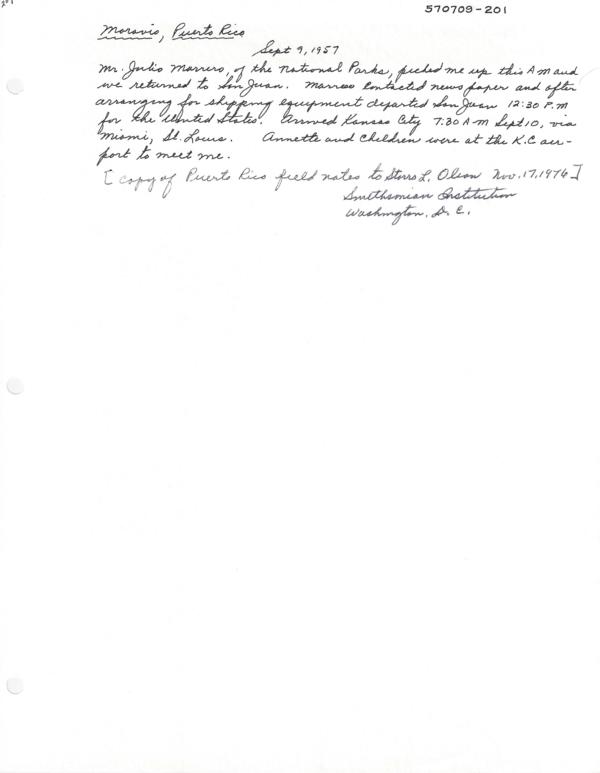 201
570709-201
Morovis, Puerto Rico
Sept 9, 1957
Mr. Julio Marrero, of the National Parks, picked me up this A m and
we returned to San Juan. Marrero Contacted news paper and after
arranging for shipping equipment departed San Juan 12:30 P.m
for the United States. Arrived Kansas City 7:30 A-m Sept 10, via
Miami, St. Louis. Annette and Children were at the K.C air-
port to meet me.
[copy of Puerto Rico field notes to Storrs L. Olson Nov. 17, 1976]
Smithsonian Institution
Washington, D. C.